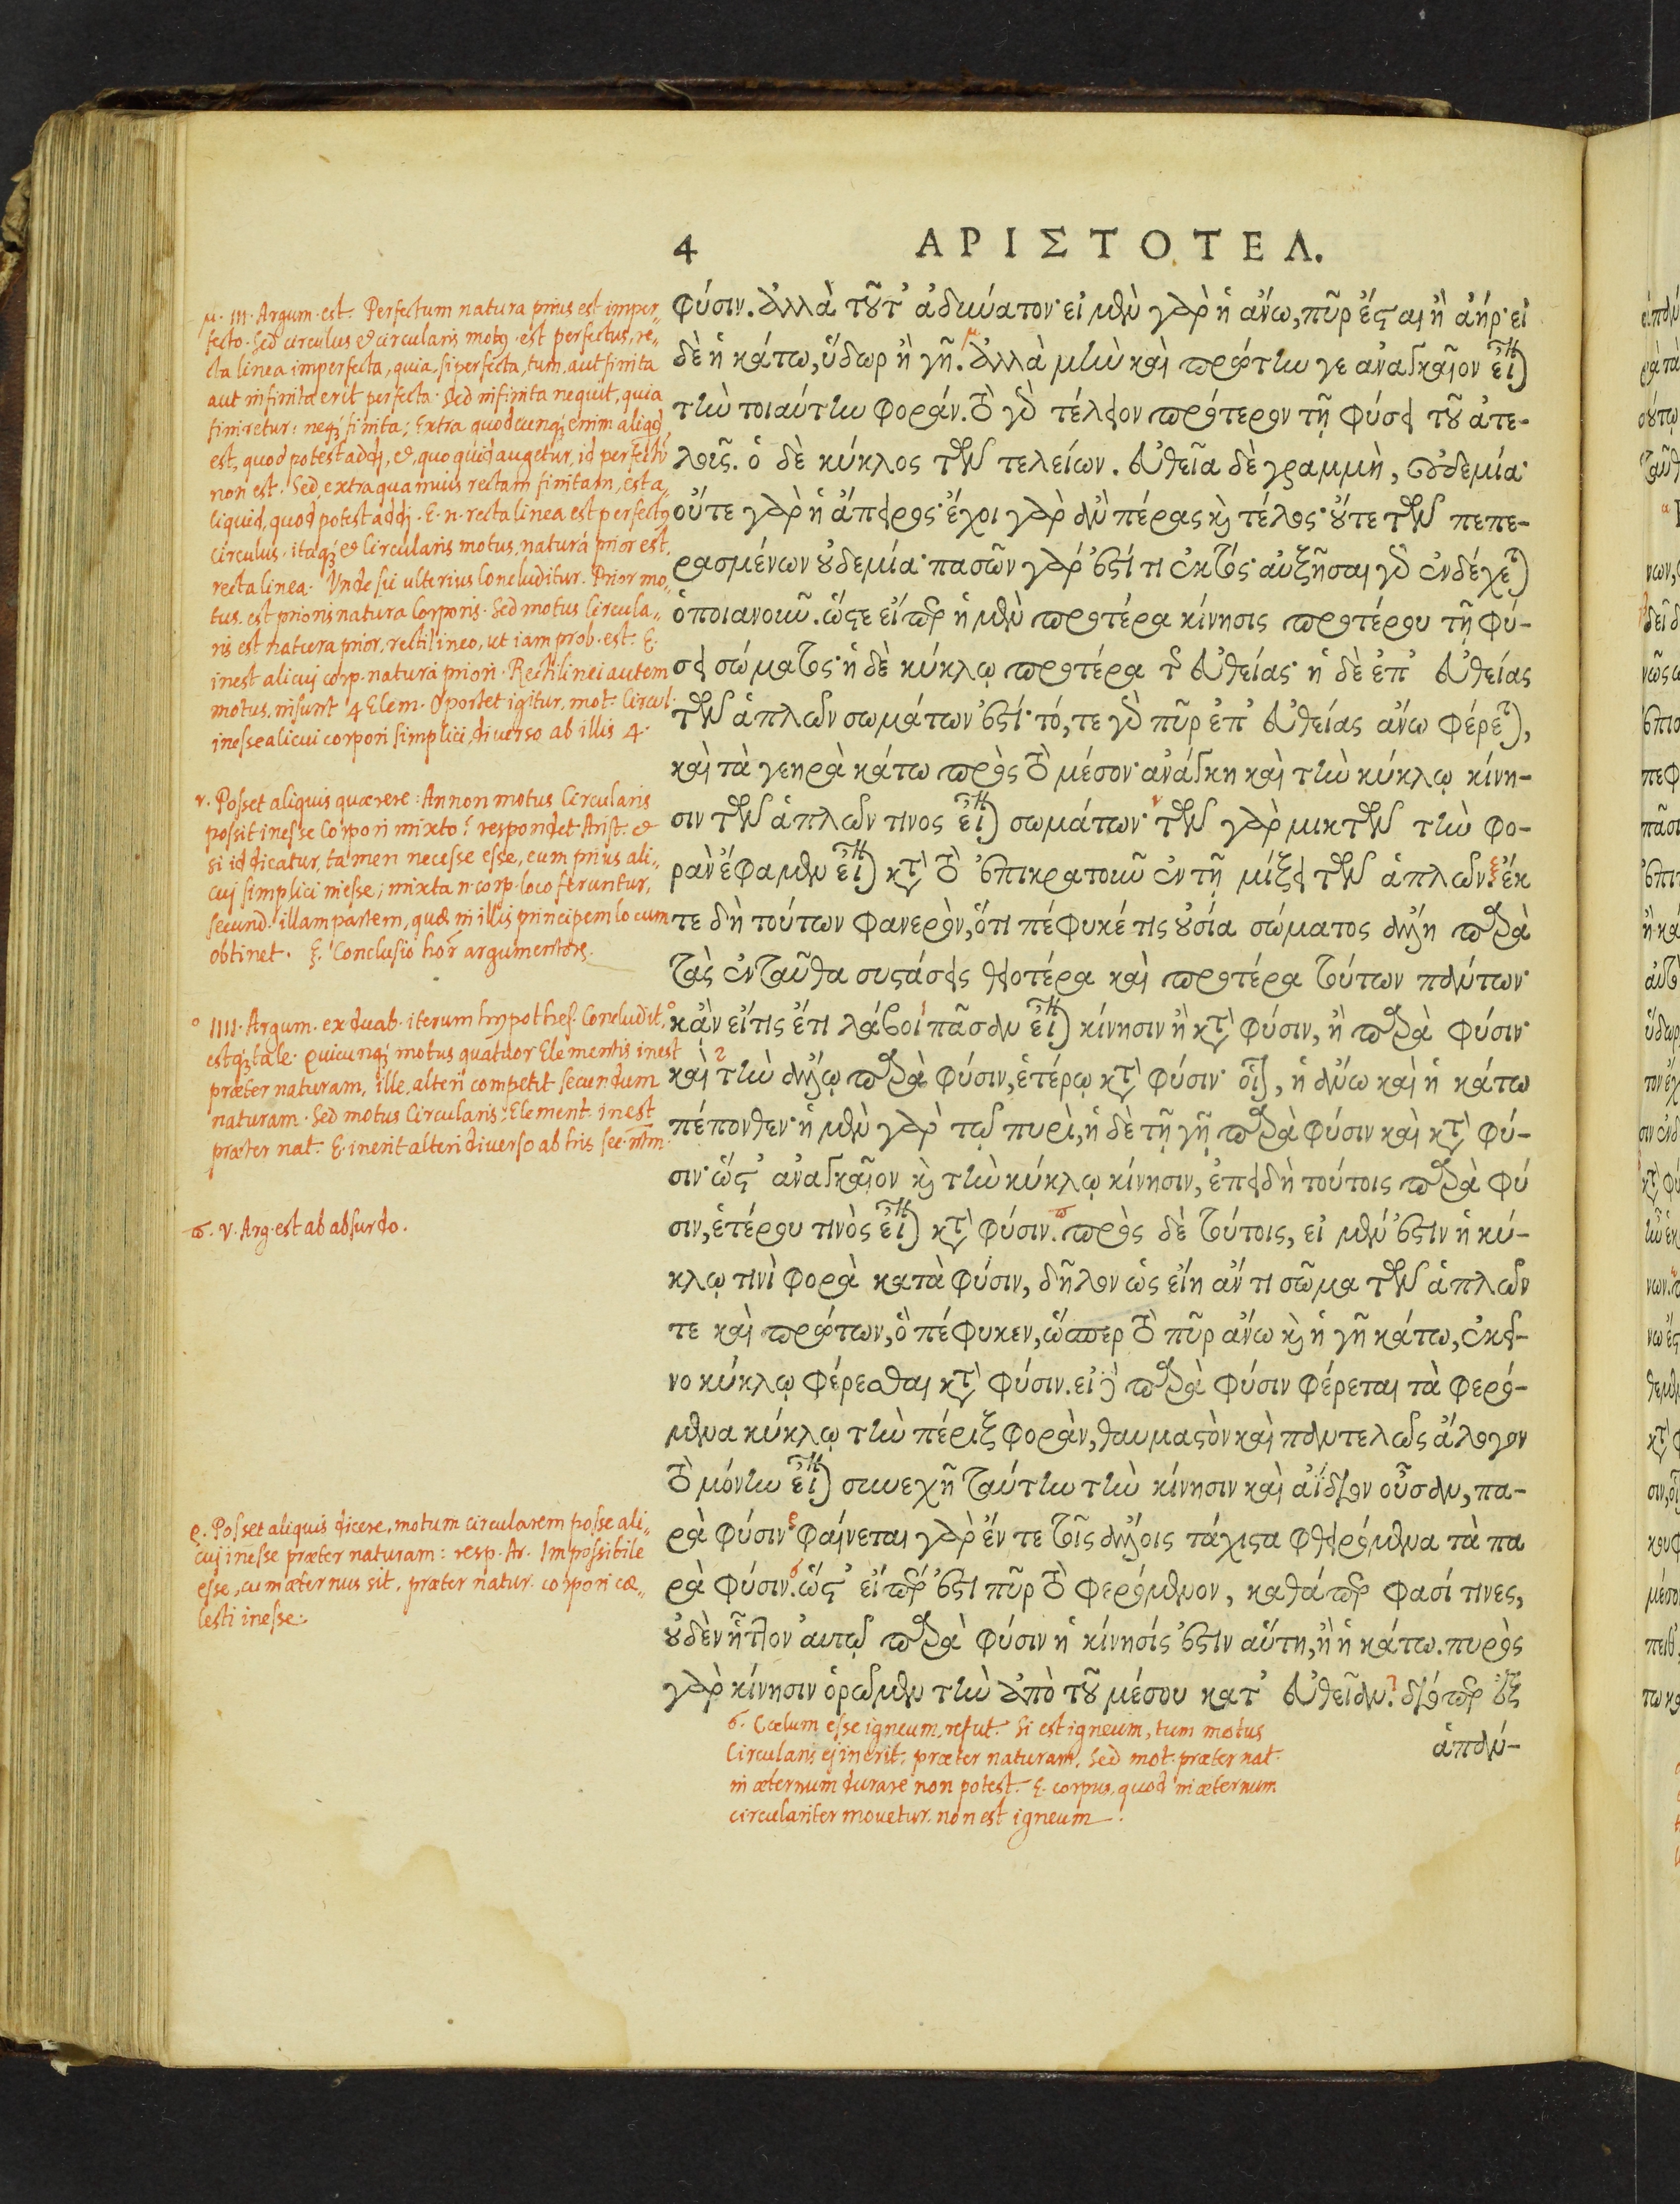 4 ΑΡΙΣΤΟΤΕΛ.
φύσιν. ἀλλὰ τοῦτ' ἀδύνατον· εἰ μὲν γὰρ ἡ ἄνω, πῦρ ἔσται ἢ ἀήρ· εἰ
δὲ ἡ κάτω, ὕδωρ ἢ γῆ. ἀλλὰ μὴν καὶ πρώτην γε ἀναγκαῖον εἶναι
τὴν τοιαύτην φοράν. τὸ γὰρ τέλειον πρότερον τῇ φύσει τοῦ ἀτε-
λοῦς. ὁ δὲ κύκλος τῶν τελείων. εὐθεῖα δὲ γραμμὴ, οὐδεμία·
οὔτε γὰρ ἡ ἄπειρος· ἔχοι γὰρ ἂν πέρας καὶ τέλος· οὔτε τῶν πεπε-
ρασμένων οὐδεμία· πασῶν γάρ ἐστί τι ἐκτός· αὐξῆσαι γὰρ ἐνδέχεται
ὁποιανοῦν. ὥστε εἴπερ ἡ μὲν προτέρα κίνησις προτέρου τῇ φύ-
σει σώματος· ἡ δὲ κύκλῳ προτέρα τῆς εὐθείας· ἡ δὲ ἐπ' εὐθείας
τῶν ἁπλῶν σωμάτων ἐστί· τό, τε γὰρ πῦρ ἐπ' εὐθείας ἄνω φέρεται,
καὶ τὰ γεηρὰ κάτω πρὸς τὸ μέσον· ἀνάγκη καὶ τὴν κύκλῳ κίνη-
σιν τῶν ἁπλῶν τινος εἶναι σωμάτων· τῶν γὰρ μικτῶν τὴν φο-
ρὰν ἔφαμεν εἶναι κατὰ τὸ ἐπικρατοῦν ἐν τῇ μίξει τῶν ἁπλῶν. ἔκ
τε δὴ τούτων φανερὸν, ὅτι πέφυκέ τις οὐσία σώματος ἄλλη παρὰ
τὰς ἐνταῦθα συστάσεις θειοτέρα καὶ προτέρα τούτων πάντων·
κἂν εἴ τις ἔτι λάβοι πᾶσαν εἶναι κίνησιν ἢ κατὰ φύσιν, ἢ παρὰ φύσιν·
καὶ τὴν ἄλλῳ παρὰ φύσιν, ἑτέρῳ κατὰ φύσιν· οἷον, ἡ ἄνω καὶ ἡ κάτω
πέπονθεν· ἡ μὲν γὰρ τῷ πυρὶ, ἡ δὲ τῇ γῇ παρὰ φύσιν καὶ κατὰ φύ-
σιν· ὥστ' ἀναγκαῖον καὶ τὴν κύκλῳ κίνησιν, ἐπειδὴ τούτοις παρὰ φύ
σιν, ἑτέρου τινὸς εἶναι κατὰ φύσιν. πρὸς δὲ τούτοις, εἰ μέν ἐστιν ἡ κύ-
κλῳ τινὶ φορὰ κατὰ φύσιν, δῆλον ὡς εἴη ἄν τι σῶμα τῶν ἁπλῶν
τε καὶ πρώτων, ὃ πέφυκεν, ὥσπερ τὸ πῦρ ἄνω καὶ ἡ γῆ κάτω, ἐκεῖ-
νο κύκλῳ φέρεσθαι κατὰ φύσιν. εἰ δὲ παρὰ φύσιν φέρεται τὰ φερό-
μενα κύκλῳ τὴν πέριξ φορὰν, θαυμαστὸν καὶ παντελῶς ἄλογον
τὸ μόνην εἶναι συνεχῆ ταύτην τὴν κίνησιν καὶ ἀΐδιον οὖσαν, πα-
ρὰ φύσιν· φαίνεται γὰρ ἔν τε τοῖς ἄλλοις τάχιστα φθειρόμενα τὰ πα
ρὰ φύσιν. ὥστ' εἴπερ ἐστὶ πῦρ τὸ φερόμενον, καθάπερ φασί τινες,
οὐδὲν ἧττον αὐτῷ παρὰ φύσιν ἡ κίνησίς ἐστιν αὕτη, ἢ ἡ κάτω. πυρὸς
γὰρ κίνησιν ὁρῶμεν τὴν ἀπὸ τοῦ μέσου κατ' εὐθεῖαν. διόπερ ἐξ
ἁπάν-
μ. III. Argum. est. Perfectum natura prius est imper-
fecto. Sed circulus et circularis motus est perfectus, re-
cta linea imperfecta, quia, si perfecta, tum, aut finita
aut infinita erit perfecta. Sed infinita nequit, quia
finiretur: neque finita; Extra quodcunque enim aliqd
est, quod potest addi, et, quo quid augetur, id perfectū
non est. Sed, extra quamvis rectam finitam, est a-
liquid, quod potest addj. E. n. recta linea est perfectus
circulus. itaque et Circularis motus, natura prior est,
recta linea. Unde sic ulterius Concluditur. Prior mo-
tus, est prioris natura Corporis. Sed motus Circula-
ris est natura prior, rectilineo, ut iam prob. est. E.
inest alicuj corp. naturâ priori. Rectilinei autem
motus, insunt 4 Elem. Oportet igitur, mot. Circul.
inesse alicui corpori simplici, diverso ab illis 4.
ν. Posset aliquis quærere: An non motus Circularis
possit inesse Corpori mixto? respondet Arist. et
si id dicatur, tamen necesse esse, eum prius ali-
cuj simplici inesse; mixta n. corp. loco feruntur,
secund. illam partem, quæ in illis principem locum
obtinet. ξ. Conclusio hor argumentors.
ο IIII. Argum. ex duab. iterum hypothes. Concludit,
estque tale. Quicunque motus quatuor Elementis inest
præter naturam, ille, alteri competit secundum
naturam. Sed motus Circularis: Element. inest
præter nat. E. inerit alteri diverso ab his sec. ntm.
ϖ. V. Arg. est ab absurdo.
ϱ. Posset aliquis dicere, motum circularem posse ali-
cuj inesse præter naturam: resp. Ar. Impossibile
esse, cum æternus sit, præter natur. corpori cæ-
lesti inesse.
σ. Cœlum esse igneum, refut. Si est igneum, tum motus
Circularis ej inerit, præter naturam. Sed mot. præter nat.
in æternum durare non potest. E. corpus, quod in æternum
circulariter movetur, non est igneum.